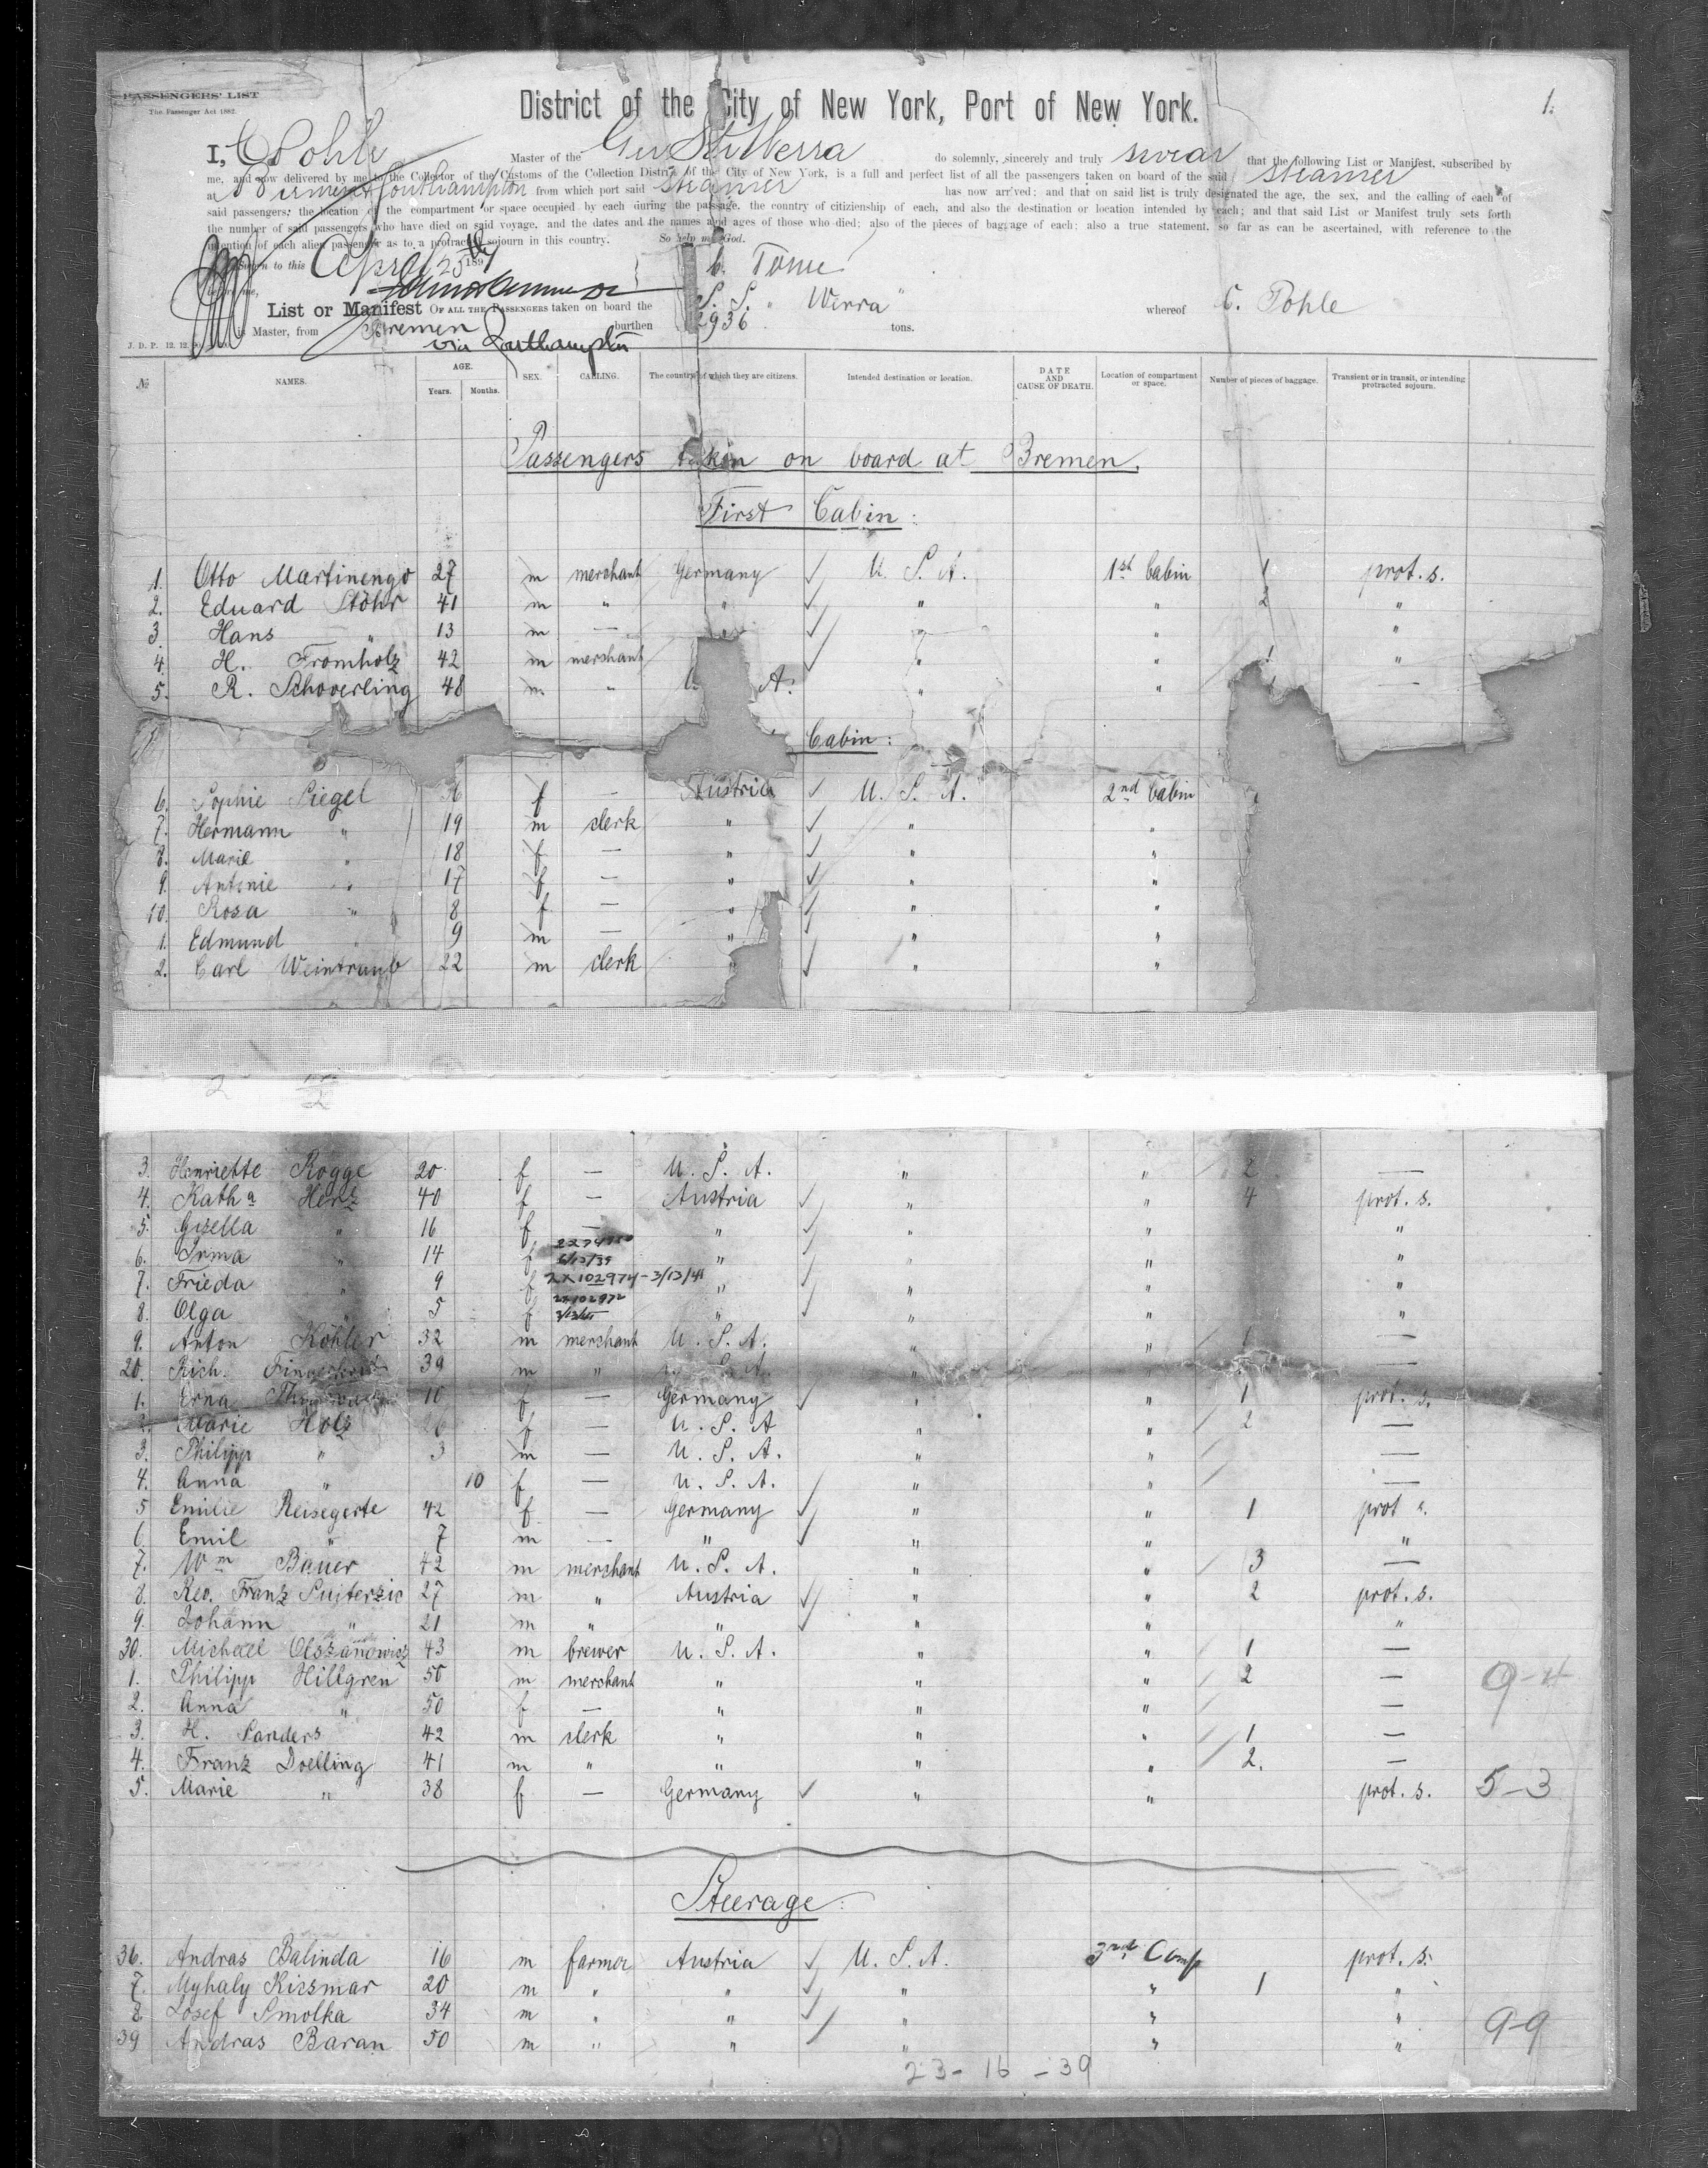 PASSENGERS' LIST
The Passenger Act 1882.
District of the City of New York, Port of New York.
1.
I, C Pohle Master of the Ger Str Werra do solemnly, sincerely and truly swear that the following List or Manifest, subscribed by
me, and now delivered by me to the Collector of the Customs of the Collection District of the City of New York, is a full and perfect list of all the passengers taken on board of the said steamer
at Bremen & Southampton from which port said steamer has now arrived; and that on said list is truly designated the age, the sex, and the calling of each of
said passengers, the location of the compartment or space occupied by each during the passage, the country of citizenship of each, and also the destination or location intended by each; and that said List or Manifest truly sets forth
the number of said passengers who have died on said voyage, and the dates and the names and ages of those who died; also of the pieces of baggage of each; also a true statement, so far as can be ascertained, with reference to the
intention of each alien passenger as to a protracted sojourn in this country. So help me God.
Sworn to this April 25th 189
me,
List or Manifest OF ALL THE PASSENGERS taken on board the S. S. " Werra " whereof C. Pohle
is Master, from Bremen via Southampton burthen 2936 tons.
J. D. P. 12. 12.
№ NAMES. AGE. Years. Months. SEX. CALLING. The country of which they are citizens. Intended destination or location. DATE AND CAUSE OF DEATH. Location of compartment or space. Number of pieces of baggage. Transient or in transit, or intending protracted sojourn.
Passengers taken on board at Bremen.
First Cabin:
1. Otto Martinengo 27 m merchant Germany ✓ U. S. A. 1st Cabin 1 prot. s.
2. Eduard Stöhr 41 m " " ✓ " " 2 "
3. Hans " 13 m — ✓ " " "
4. H. Fromholz 42 m merchant ✓ " " 1 "
5. R. Schoverling 48 m " U. A. " " —
Cabin:
6. Sophie Siegel 36 f — Austria ✓ U. S. A. 2nd Cabin
7. Hermann " 19 m clerk " ✓ " "
8. Marie " 18 f — " ✓ " "
9. Antonie " 17 f — " ✓ " "
10. Rosa " 8 f — " ✓ " "
1. Edmund " 9 m — " ✓ " "
2. Carl Weintraub 22 m clerk " ✓ " "
3. Henriette Rogge 20 f — U. S. A. " " 2 —
4. Katha Herz 40 f — Austria ✓ " " 4 prot. s.
5. Gisella " 16 f — " ✓ " " "
6. Irma " 14 f " ✓ " " "
7. Frieda " 9 f 2x102974-3/13/41 " ✓ " " "
8. Olga " 5 f 2x102972 " ✓ " " "
9. Anton Köhler 32 m merchant U. S. A. " " 1 —
20. Rich. 39 m " U. S. A. " " —
1. Erna 10 f — Germany ✓ " " 1 prot. s.
2. Marie Holz 26 f — U. S. A " " 2 —
3. Philipp " 3 m — U. S. A. " " —
4. Anna " 10 f — U. S. A. " " —
5 Emilie Reisegerte 42 f — Germany ✓ " " 1 prot s.
6. Emil " 7 m — " ✓ " " "
7. Wm Bauer 42 m merchant U. S. A. " " 3 —
8. Rev. Franz 27 m " Austria ✓ " " 2 prot. s.
9. Johann " 21 m " " ✓ " " "
30. Michael Olszanowicz 43 m brewer U. S. A. " " 1 —
1. Philipp Hillgren 50 m merchant " " " 2 — 9-4
2. Anna " 50 f — " " " —
3. H. Sanders 42 m clerk " " " 1 —
4. Franz Doelling 41 m " " " " 2. —
5. Marie " 38 f — Germany ✓ " " prot. s. 5-3
Steerage:
36. Andras Balinda 16 m farmer Austria ✓ U. S. A. 3rd Comp prot. s.
7. Myhaly Kiszmar 20 m " " ✓ " " 1 "
8. Josef Smolka 34 m " " ✓ " " "
39 Andras Baran 50 m " " / " " " 9-9
23- 16 -39